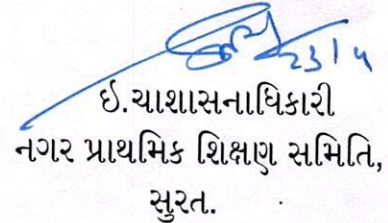 23/5
ઈ.ચાશાસનાધિકારી
નગર પ્રાથમિક શિક્ષણ સમિતિ,
સુરત.